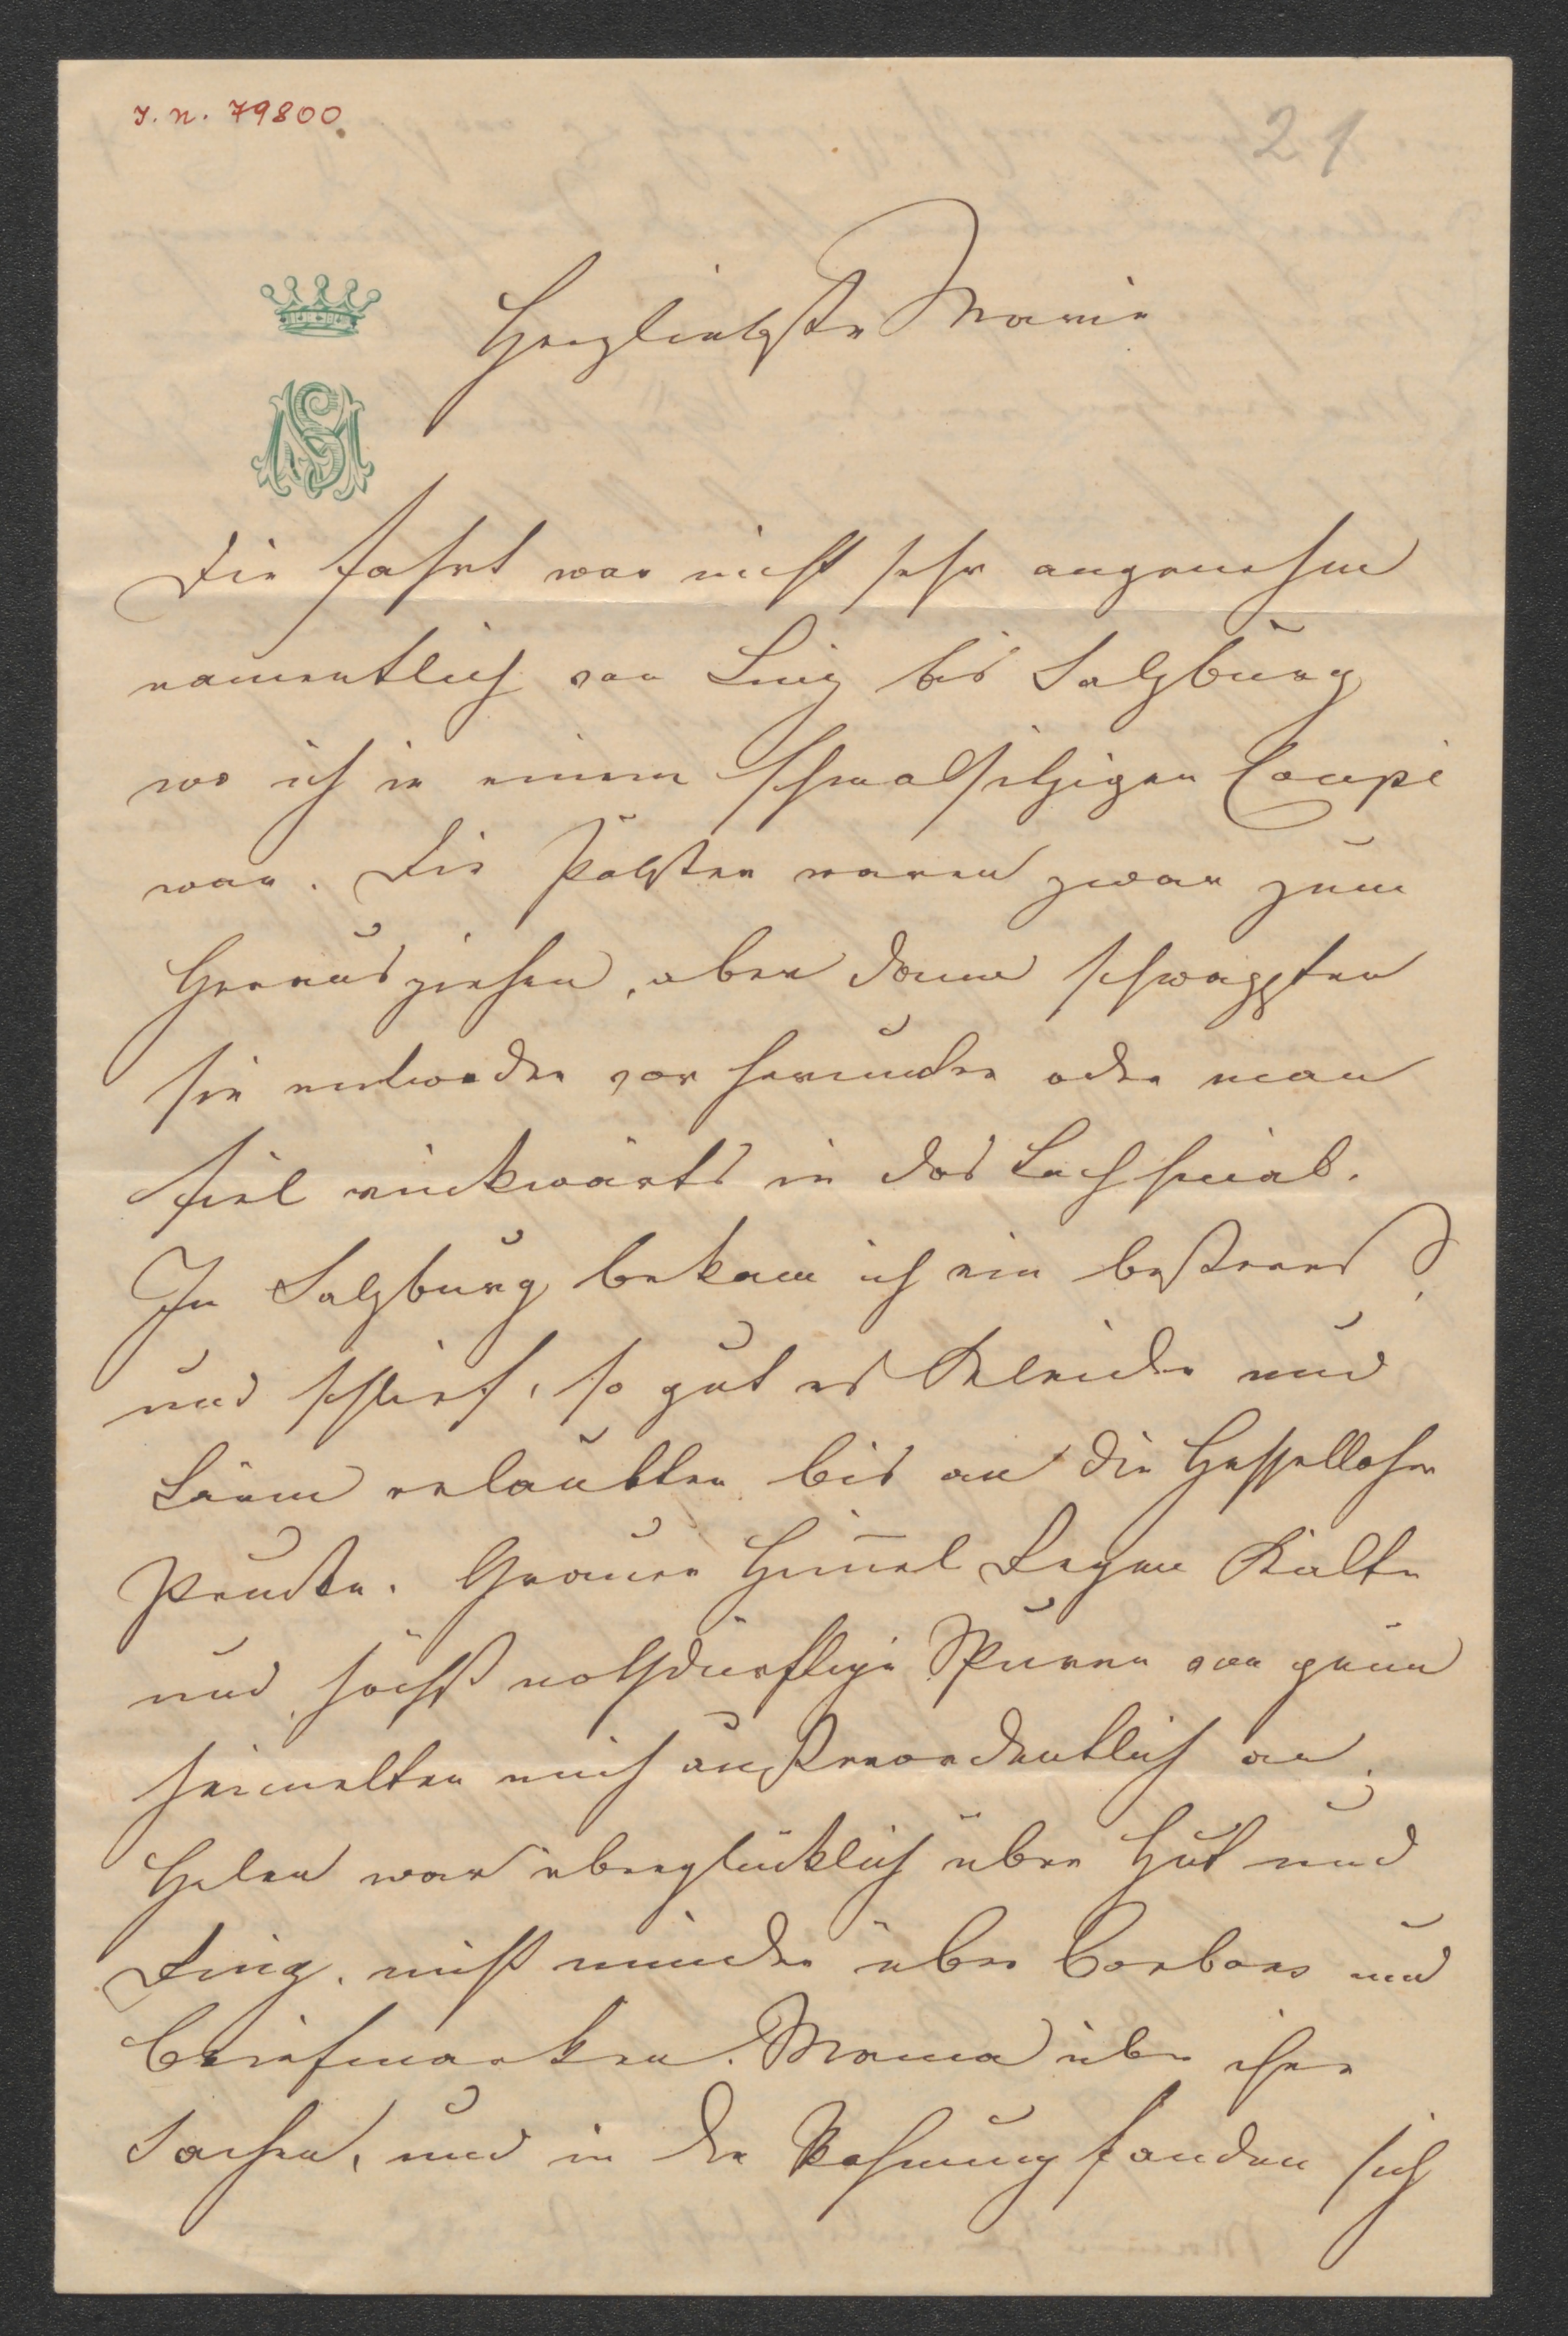 I. N. 79800
21
Herzliebste Marie
Die Fahrt war nicht sehr angenehm
namentlich von Linz bis Salzburg
wo ich in einem schmalsitzigen Coupé
war. Die Pölster waren zwar zum
Herausziehen, aber dann schwappten
sie entweder vor herunter oder man
fiel rückwärts in das Loch hinab.
In Salzburg bekam ich ein besseres
und schlief, so gut es Kleider und
Lärm erlaubten bis an die Hesselloher
Brücke. Grauer Himmel Regen Kälte
und höchst nothdürftige Spuren von grün
heimelten mich außerordentlich an.
Helen war überglücklich über Hut und
Ring, nicht minder über Bonbons und
Briefmarken. Mama über ihre
Sachen, und in der Wohnung fanden sich